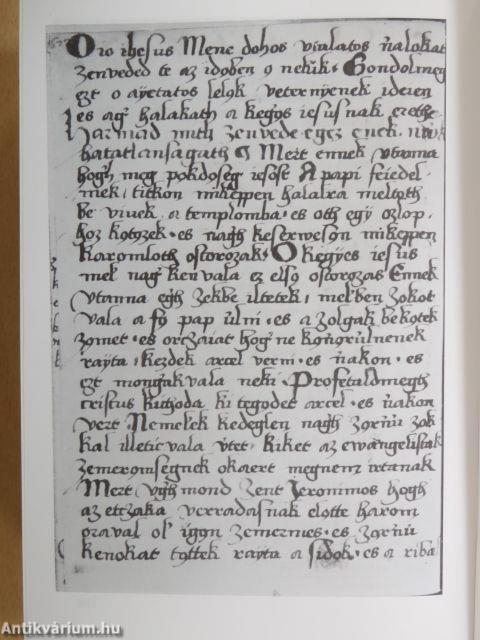 O vro ihesus Mene dohos vtalatos ńalokat
zenveded te az idoben ꝯ netuk · Gondolmeg
ezt o ayetatos lelyk veternyenek ideien
es aǵ halakath a keǵos iesusnak erethe
harmad mith zenvede egez enek
hatatlansagath Mert ennek vtanna
hoǵ meg pokdoseg iesost A papi feiedel
mek · titkon mikeppen halalra meltoth
be vivek · a templomba · es oth eǵy ozlop ·
hoz kotozek · es naǵh keserwesön mikeppen
karomloth ostorozak · O keǵyes iesus
mel naǵ ken vala ez elso ostorozas Ennek
vtanna eǵh zekbe iltetek · melben zokot
vala a fo pap ulni · es a zolgak be kotek
zomet · es orczaiat hoǵ ne konǵrulnenek
rayta · kezdek arcel verni · es ńakon · es
ezt monǵak vala neki · Profetaldmegh
cristus kithoda ki tegodet arcel · es ńakon
vert Nemelek kedeglen naǵh zorńu zok
kal illetic vala vtet · kiket az ewangelistak
zemeromsegnek okaert megnem irtanak
Mert vǵh mond zent Jeronimos hogh
az etczaka verradasnak elotte harom
oraval ol' iǵyn zemernies · es zorńu
kenokat tyttek rayta a sidok · es a ribal
Antikvárium.hu